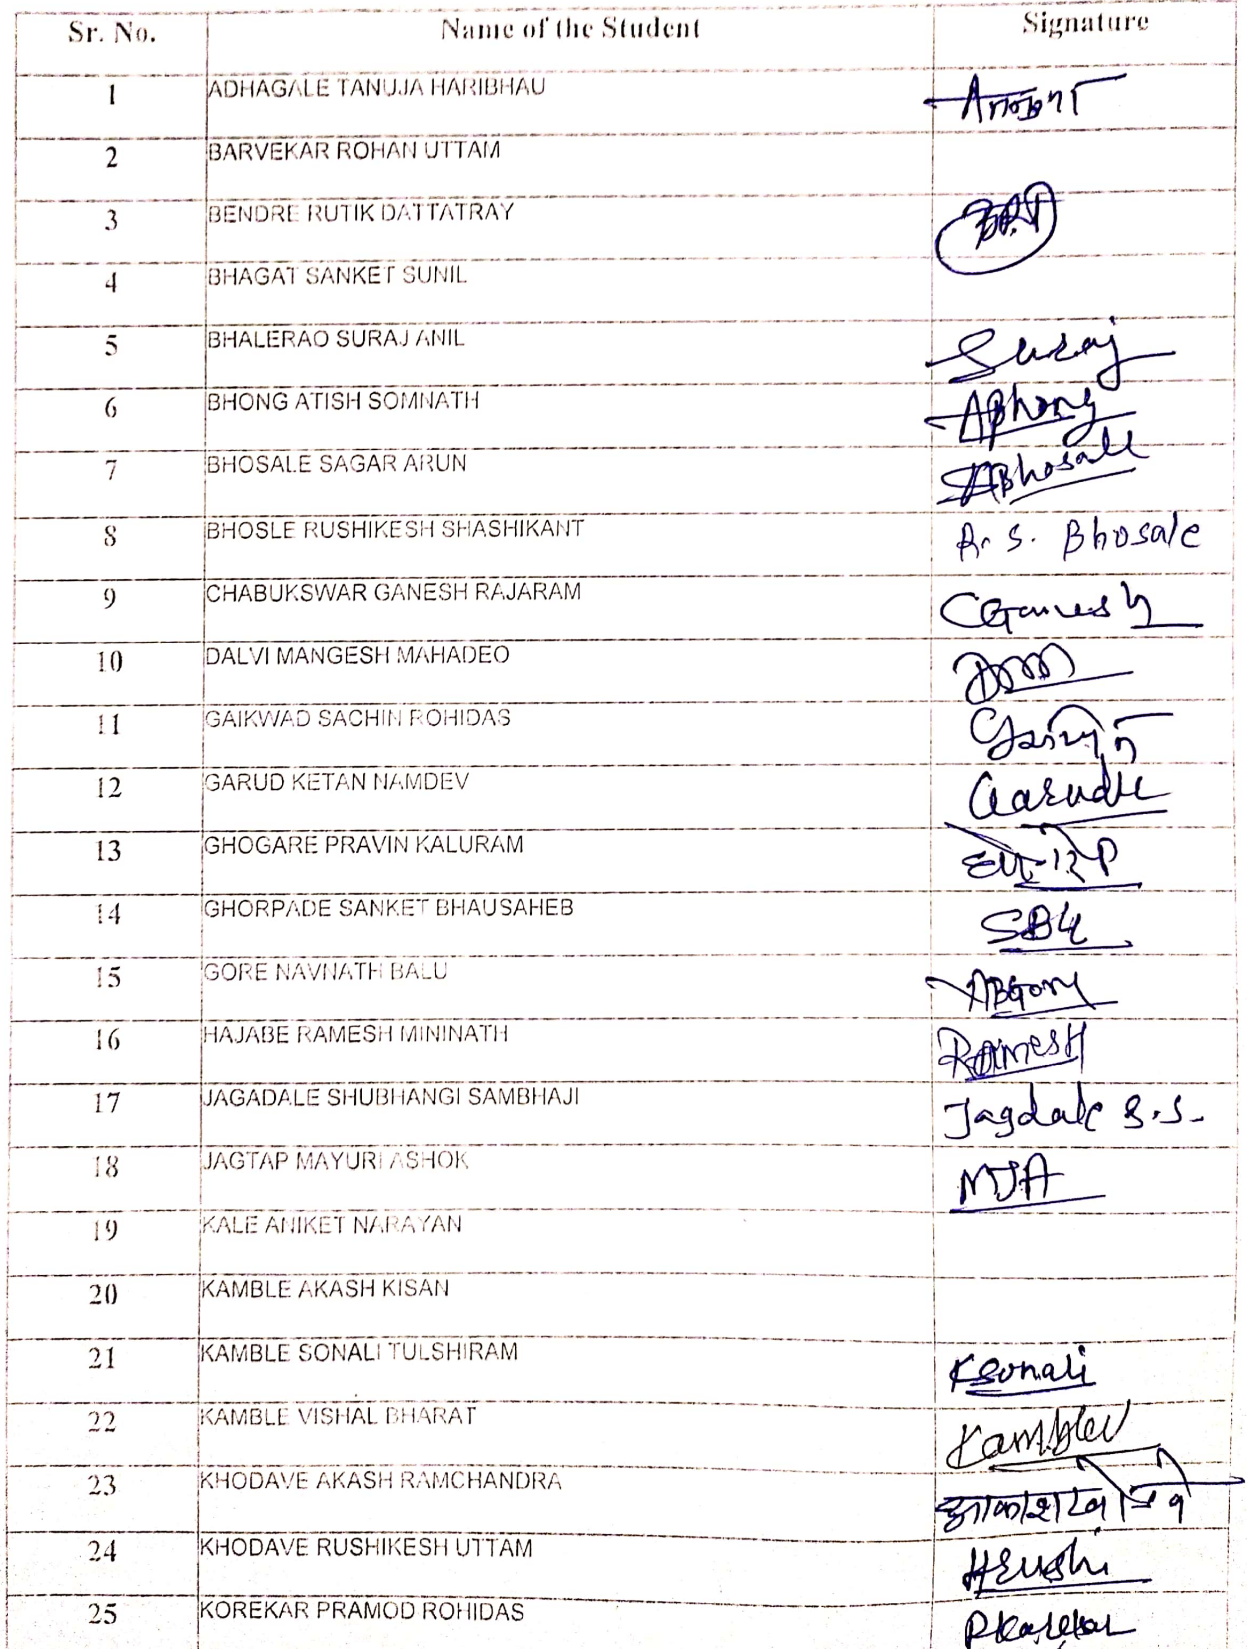 Sr. No. Name of the Student Signature
1 ADHAGALE TANUJA HARIBHAU
2 BARVEKAR ROHAN UTTAM
3 BENDRE RUTIK DATTATRAY
4 BHAGAT SANKET SUNIL
5 BHALERAO SURAJ ANIL Suraj
6 BHONG ATISH SOMNATH ABhong
7 BHOSALE SAGAR ARUN SABhosale
8 BHOSLE RUSHIKESH SHASHIKANT R. S. Bhosale
9 CHABUKSWAR GANESH RAJARAM CGanesh
10 DALVI MANGESH MAHADEO
11 GAIKWAD SACHIN ROHIDAS
12 GARUD KETAN NAMDEV
13 GHOGARE PRAVIN KALURAM
14 GHORPADE SANKET BHAUSAHEB
15 GORE NAVNATH BALU
16 HAJABE RAMESH MININATH RamesH
17 JAGADALE SHUBHANGI SAMBHAJI Jagdale S.S.
18 JAGTAP MAYURI ASHOK MJA
19 KALE ANIKET NARAYAN
20 KAMBLE AKASH KISAN
21 KAMBLE SONALI TULSHIRAM KSonali
22 KAMBLE VISHAL BHARAT KambleV
23 KHODAVE AKASH RAMCHANDRA
24 KHODAVE RUSHIKESH UTTAM
25 KOREKAR PRAMOD ROHIDAS